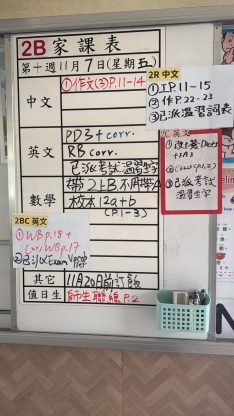 2B 家課表
第十週11月7日(星期五)
中文
①作文(3)P.11-14
英文
PD3+corr.
RB corr.
已派考試溫習
數學
帶2上B不用帶A
校本12a+b
(P.1-3)
其它
11月20前訂飯
值日生
師生聯線P.2
2R 中文
①工P.11-15
②作P.22-23
③已派溫習詞表
2C 英文
③已派考試
溫習
2BC 英文
①WBp.18+
corr. WBp.17
②已派Exam